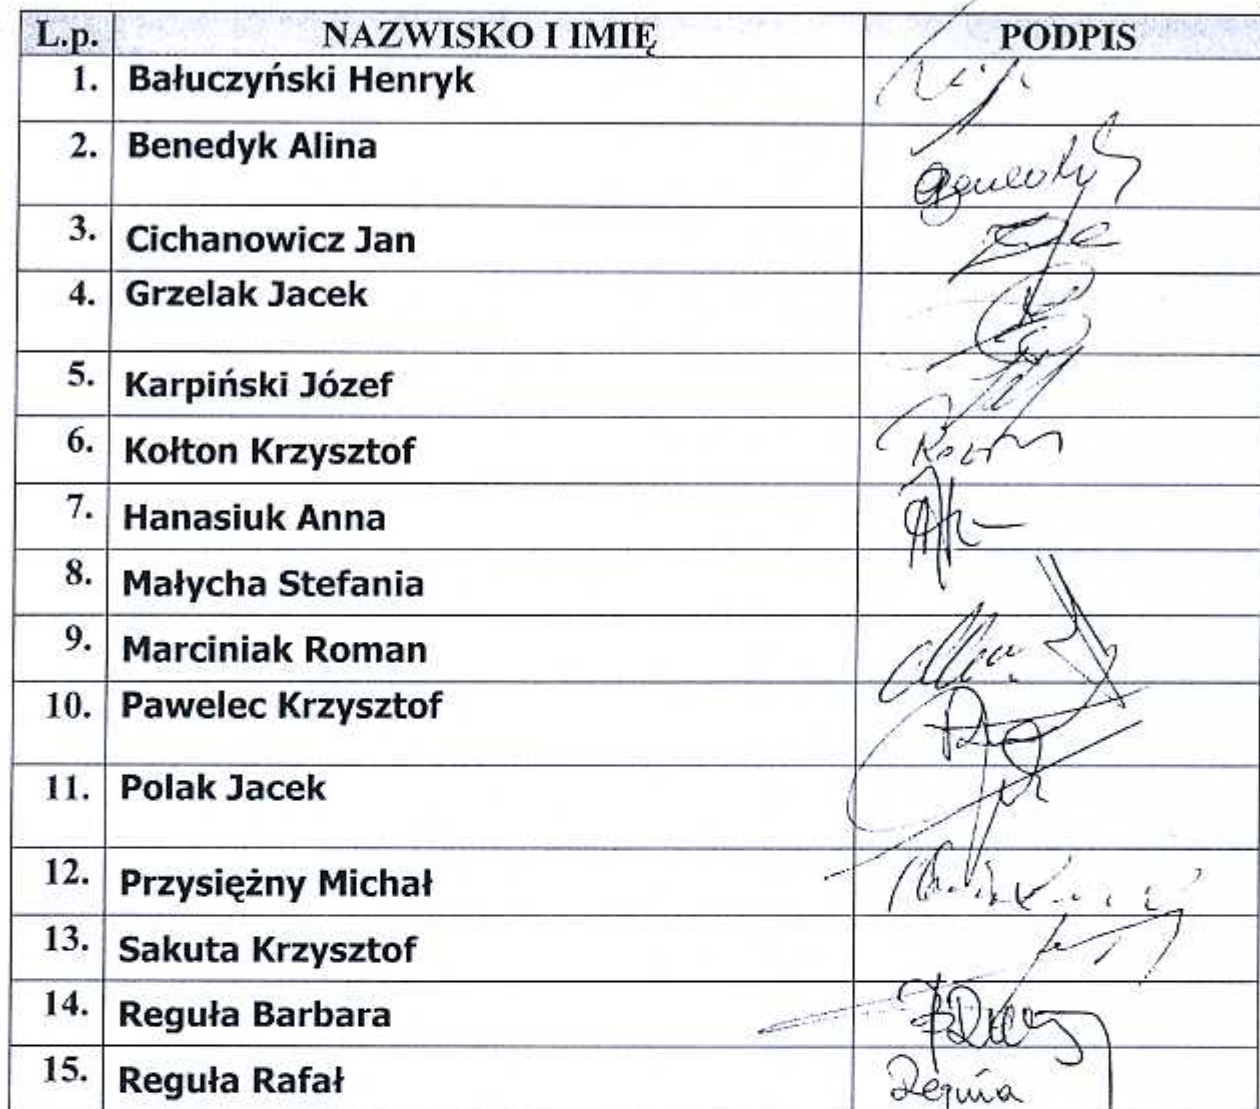 L.p. NAZWISKO I IMIĘ PODPIS
1. Bałuczyński Henryk
2. Benedyk Alina
3. Cichanowicz Jan
4. Grzelak Jacek
5. Karpiński Józef
6. Kołton Krzysztof
7. Hanasiuk Anna
8. Małycha Stefania
9. Marciniak Roman
10. Pawelec Krzysztof
11. Polak Jacek
12. Przysiężny Michał
13. Sakuta Krzysztof
14. Reguła Barbara
15. Reguła Rafał